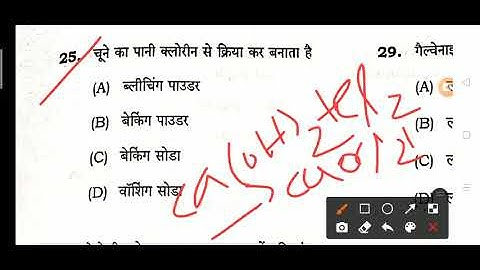 25. चूने का पानी क्लोरीन से क्रिया कर बनाता है
(A) ब्लीचिंग पाउडर
(B) बेकिंग पाउडर
(C) बेकिंग सोडा
(D) वॉशिंग सोडा
Ca(OH)2+Cl2
CaOCl2
29. गैल्वेनाइ
(A)
(B)
(C)
(D)